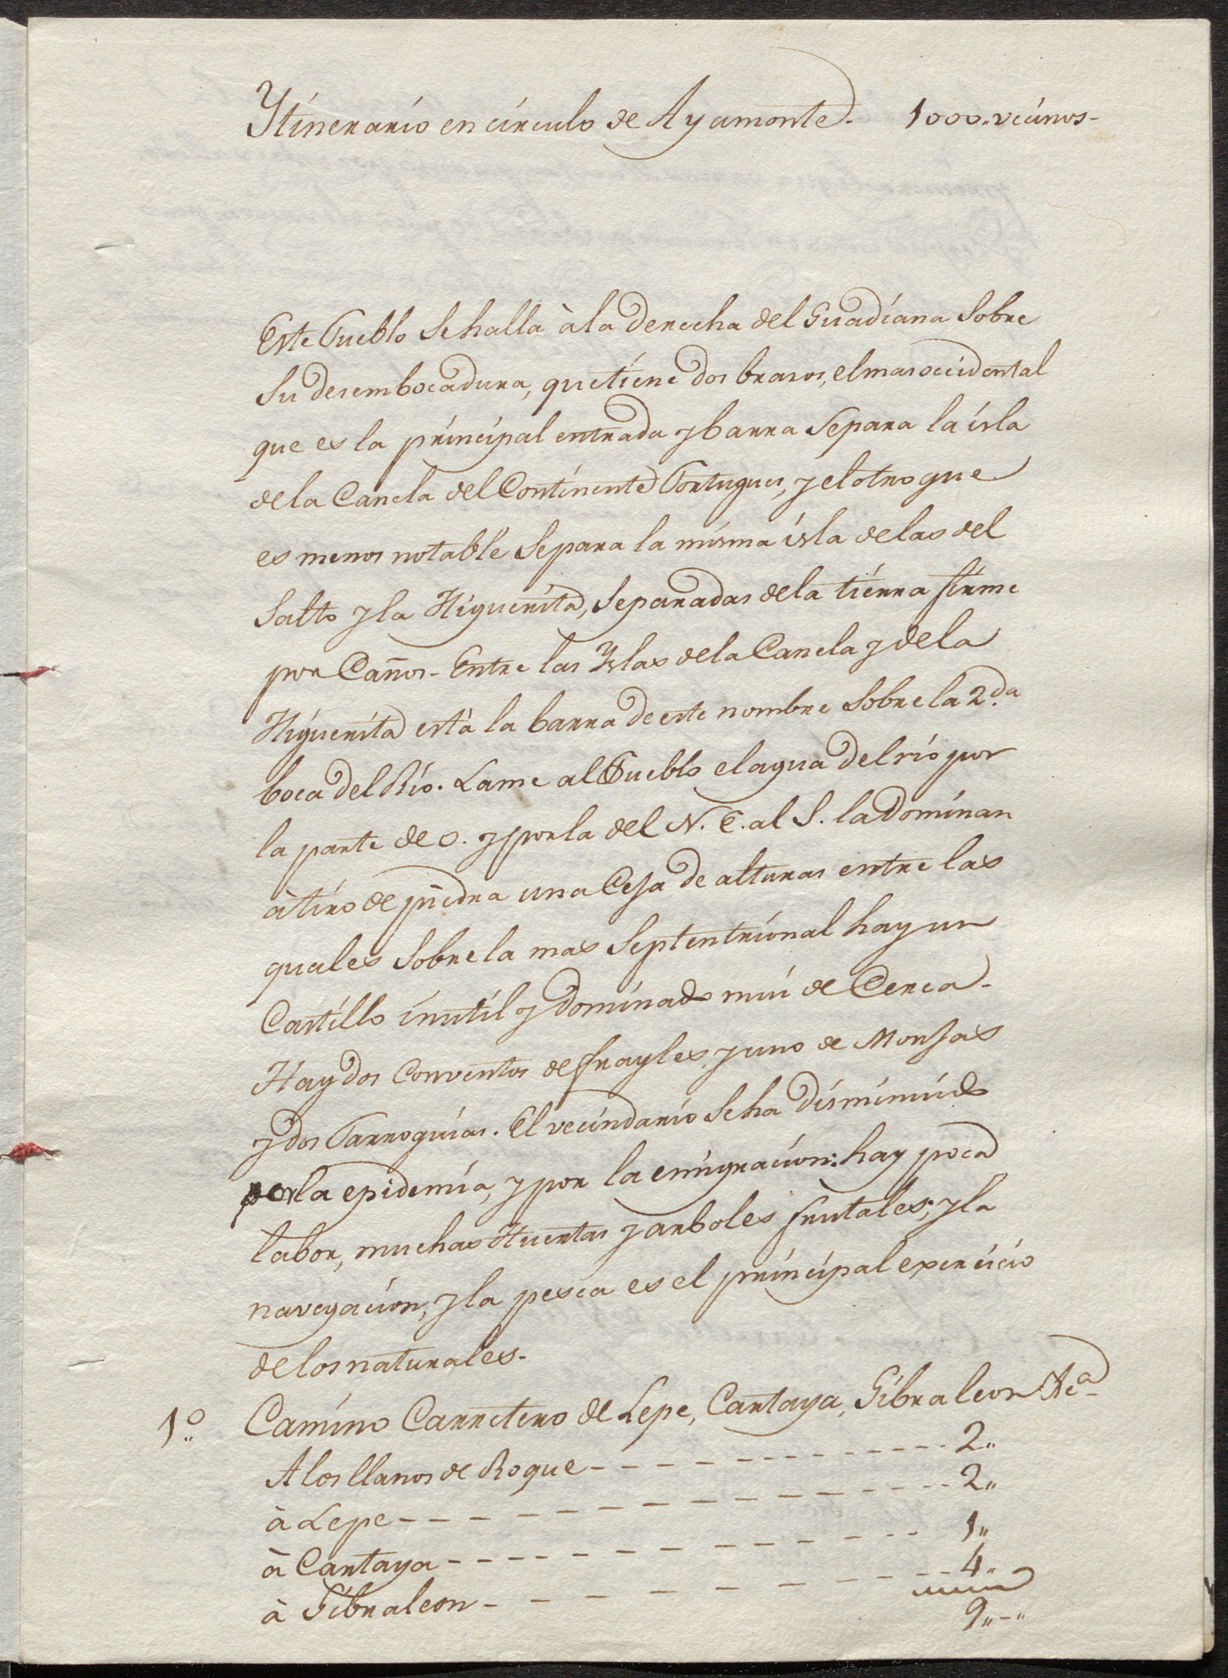 Ytinerario en circulo de Ayamonte. 1000.. vecinos -
Este Pueblo se halla à la derecha del Guadiana sobre
su desembocadura, que tiene dos brazos, el mas occidental
que es la principal entrada y barra separa la isla
de la Canela del Continente Portugues, y el otro que
es menos notable separa la misma isla de las del
Salto y la Higuerita, separadas de la tierra firme
por Caños - Entre las Yslas de la Canela y de la
Higuerita està la barra de este nombre sobre la 2.da
boca del Rio. Lame al Pueblo el agua del rio por
la parte de O. y por la del N. E. al S. la dominan
à tiro de piedra una Ceja de alturas entre las
quales sobre la mas septentrional hay un
Castillo inutil y dominado mui de Cerca -
Hay dos Conventos de frayles y uno de Monjas
y dos Parroquias. El vecindario se ha disminuido
por la epidemia, y por la emigracion: hay poca
labor, muchas Huertas y arboles frutales; y la
navegacion, y la pesca es el principal exercicio
de los naturales -
1.º Camino Carretero de Lepe, Cartaya, Gibraleon &ca
A los llanos de Roque - - - - - - - - - - 2..
à Lepe - - - - - - - - - - - - 2..
à Cartaya - - - - - - - - - - - 1..
à Gibraleon - - - - - - - - - - 4..
9.. - ..